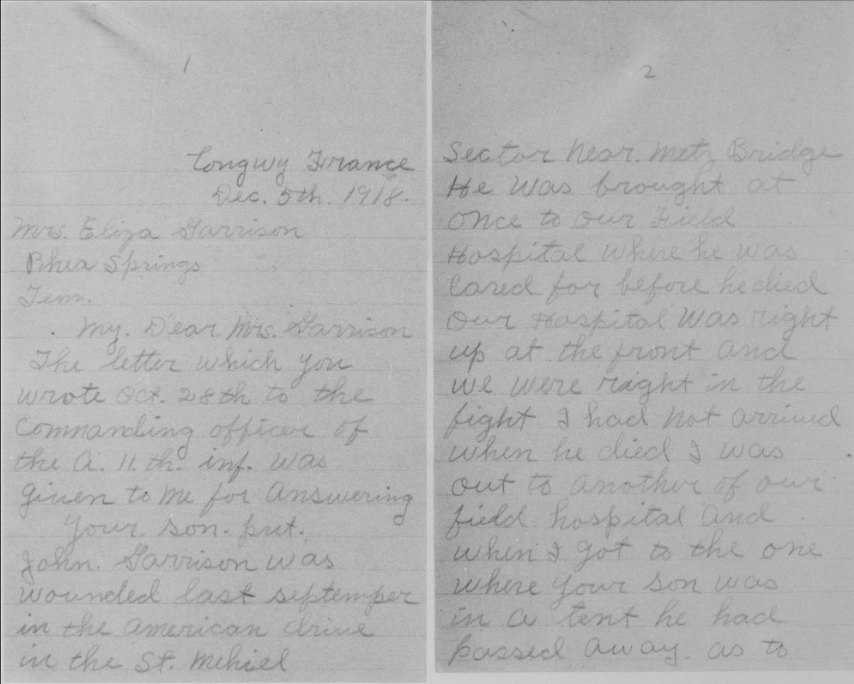 1
Longwy France
Dec. 5th. 1918.
Mrs. Eliza Garrison
Rhea Springs
Tenn.
My. Dear Mrs. Garrison
The letter which you
wrote Oct. 28th to the
Commanding officer of
the A. 11.th. inf. was
given to me for answering
your. son. prvt.
John. Garrison was
wounded last septemper
in the american drive
in the St. Mehiel
2
Sector near. Metz Bridge
He was brought at
once to our Field
Hospital where he was
cared for before he died
Our Hospital was right
up at the front and
we were right in the
fight I had not arrived
when he died I was
out to another of our
field hospital and
when I got to the one
where your son was
in a tent he had
passed away. as to